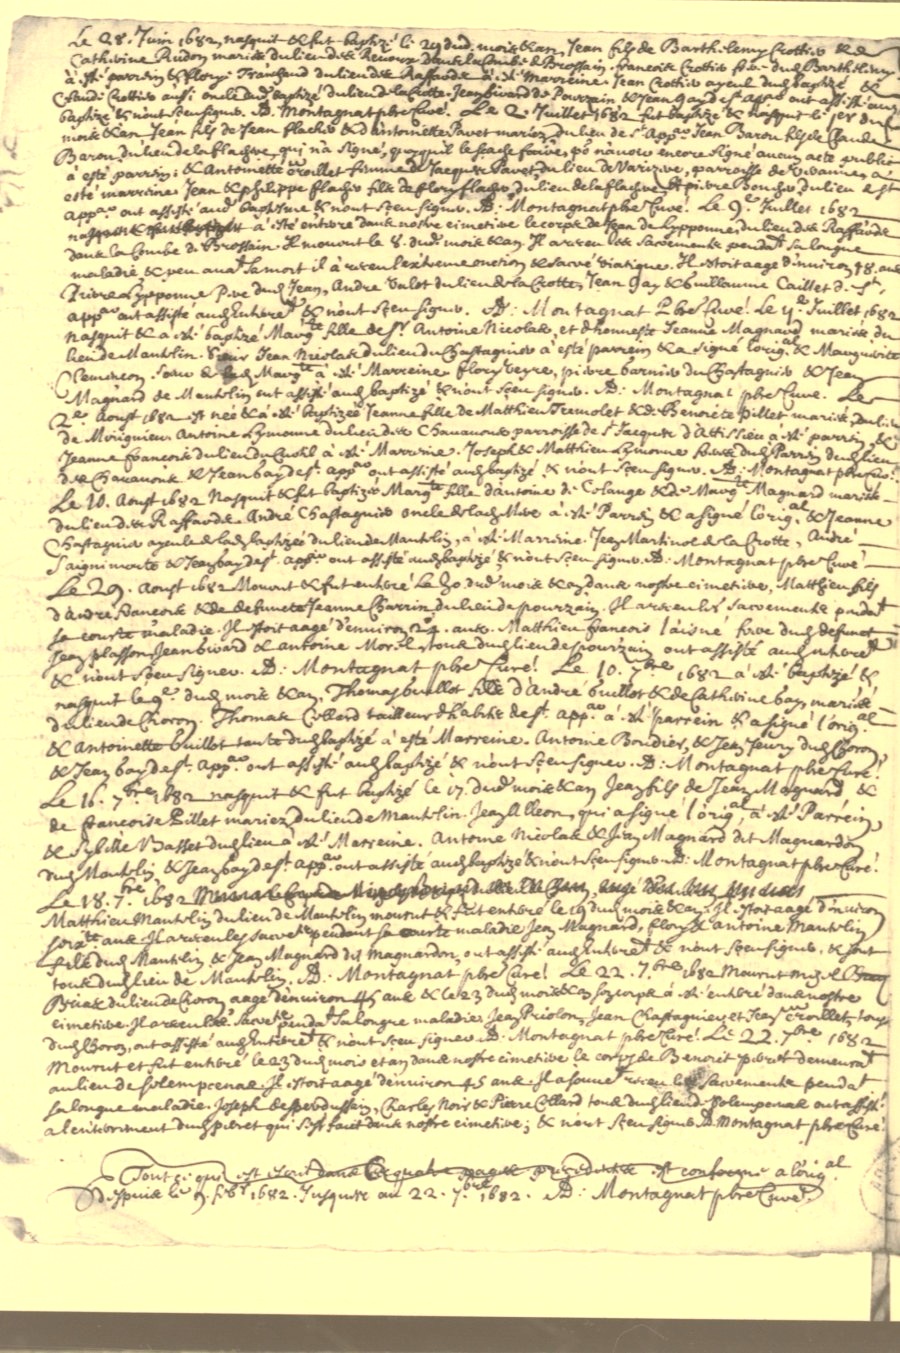 Le 28. Juin 1682, nasquit & fut baptizé le 29 dud. mois & an, Jean fils de Barthelemy Crottier & de
Catherine Rudon mariés du lieu de la Combe de Brossain, françois Crottier frere dud. Barthelemy
à été parrein & du lieu de Raffarde à été Marreine. Jean Crottier ayeul dud. baptizé &
Claude Crottier aussi oncle dud. baptizé du lieu de la Crotte. Jean Sivard de Pourzain & Jean Gay de St. Appo. ont assisté aud.
baptizé & n'ont sceu signer. AD: Montagnat pbre Curé. Le 2. Juillet 1682 fut baptizé & nasquit le 1er dud.
mois & an Jean fils de Jean flacher & d'antoinette Pavet mariez du lieu de St. Appo. Jean Baron fils de Claude
Baron du lieu de la flachere, qui n'a signé, quoyqu'il le scache faire, po. n'avoir encore signé aucun acte public
à esté parrein: & Antoinette Crollet femme à Jacques Pavet du lieu de Varizive, parroisse de Vivanne, a
esté marreine. Jean & philippe flacher fils de flory flacher du lieu de la flachere & pierre Boucher du lieu de St
Appo. ont assisté aud. baptesme & n'ont sceu signer. AD: Montagnat pbre Curé! Le 9e Juillet 1682
à esté enterré dans nostre cimetiere le corps de Jean de Lypponne, du lieu de Raffarde
dans la Combe de Brossain. Il mourut le 8. dud. mois & an. Il a receu les sacrements pendat. sa longue
maladie & peu avat. sa mort il à receu l'extreme onction & sacré viatique. Il estoit aagé d'environ 48. ans
Pierre Lypponne P. dud. Jean, Andre Valot du lieu de la Crotte, Jean Gay & Guillaume Caillet de St.
Appo. ont assisté aud. enterremt. & n'ont sceu signer. AD: Montagnat Pbre Curé! Le 4e Juillet 1682
nasquit & a été baptizé Margte. fille de Sr. Antoine Nicolas, et d'honneste Jeanne Magnard mariés du
lieu de Mantelin. Sieur Jean Nicolas du lieu du Chastagnier à esté parrein & a signé l'origal. & Marguerite
Clemencon soeur de lad. Margte. à été Marreine flory Veyre, pierre barnier du Chastagnier & Jean
Magnard de Mantelin ont assisté aud. baptizé & n'ont sceu signer. AD: Montagnat pbre Curé. Le
2e. Aoust 1682 est née & à été baptizée Jeanne fille de Matthieu Tremolet & d. Benoiste Pillet mariés, du lieu
de Morignieu Antoine Lymonne du lieu de Chavanons parroisse de St. Jacques d'Attissieu à été parrein, &
Jeanne Francois du lieu du à été Marreine. Joseph & Matthieu Lymonne freres dud. Parrin du lieu
de Chavanons & Jean bay de St. appo. ont assisté aud. baptizé & n'ont sceu signer. AD: Montagnat pbre Curé!
Le 10. Aoust 1682 Nasquit & fut baptizée Margte. fille d'antoine de Colange & de Margte. Magnard mariés
du lieu de Raffarde. André Chastagnier oncle de lad. Mere à été Parrein & a signé l'origal. & Jeanne
Chastagnier ayeule de lad. baptizée du lieu de Mantelin, à été Marreine. Jean Martinol de la Crotte, André
Saignimorte & Jean bay de St. appo. ont assisté aud. baptizé, & n'ont sceu signer. AD: Montagnat pbre Curé!
Le 29. Aoust 1682 Mourut & fut enterré Le 30 dud. mois & an dans nostre cimetiere, Matthieu fils
d'andre francois & de defuncte Jeanne Charrin du lieu de pourzain. Il a receu les sacrements pendat.
sa courte maladie. Il estoit aagé d'environ 24. ans. Matthieu francois l'aisné frere dud. defunct
Jean plasson, Jean Sivard & Antoine Morel, tous dud. lieu de pourzain ont assisté aud. enterremt.
& n'ont sceu signer. AD: Montagnat pbre Curé! Le 10. 7bre 1682 à été baptizé &
nasquit le 9e dud. mois & an. Thomas buillot fils d'andre buillot & de Catherine bay, mariés
du lieu de Choron. Thomas Collard tailleur d'habits de St. appo. à été parrein & a signé l'origal.
& Antoinette buillot tante dud. baptizé à esté Marreine. Antoine Boudier, & Jean Jeury dud. Choron,
& Jean bay de St. appo. ont assisté aud. baptizé & n'ont sceu signer. AD: Montagnat pbre Curé!
Le 16. 7bre 1682 nasquit & fut baptizé le 17. dud. mois & an Jean fils de Jean Magnard &
de francoise Pillet mariez du lieu de Mantelin. Jean Ulleon, qui a signé l'origal., à été Parrein,
& Sybille Vasset dud. lieu à été Marreine. Antoine Nicolas & Jean Magnard dit Magnardon
dud. Mantelin, & Jean bay de St. appo. ont assisté aud. baptizé & n'ont sceu signer AD: Montagnat pbre Curé!
Le 18. 7bre 1682
Matthieu Mantelin du lieu de Mantelin mourut & fut enterré le 19 dud. mois & an. Il estoit aagé d'environ
soixte. ans Il a receu les sacremts. pendant sa courte maladie Jean Magnard, flory & antoine Mantelin
fils dud. Mantelin & Jean Magnard dit magnardon, ont assisté aud. enterremt. & n'ont sceu signer. & sont
tous dud. lieu de Mantelin. AD: Montagnat pbre Curé! Le 22. 7bre 1682 Mourut
Priat du lieu de Choron aagé d'environ 45 ans & le 23 dud. mois & an son corps à été enterré dans nostre
cimetiere. Il a receu les sacremts. pendat. sa longue maladie Jean Priolon, Jean Chastagnier et Jean Crollet, tous
dud. Choron, ont assisté aud. enterremt. & n'ont sceu signer AD: Montagnat pbre Curé! Le 22. 7bre 1682
Mourut et fut enterré le 23 dud. mois et an dans nostre cimetiere le corps de Benoit peret demeurat.
au lieu de Solempcenas. Il estoit aagé d'environ 45 ans. Il a souvet. receu les sacrements pendat.
sa longue maladie. Joseph desperdussin, Charles Noir & Pierre Collard tous dud. lieu de Solempcenas ont assisté
a l'enterrement dud. peret qui s'est fait dans nostre cimetiere; & n'ont sceu signer AD: Montagnat pbre Curé!
Tout ce qui est escrit dans les quatre pages precedentes est conforme a l'origal.
despuis le 9. febr. 1682. Jusques au 22. 7bre 1682. AD: Montagnat pbre Curé.